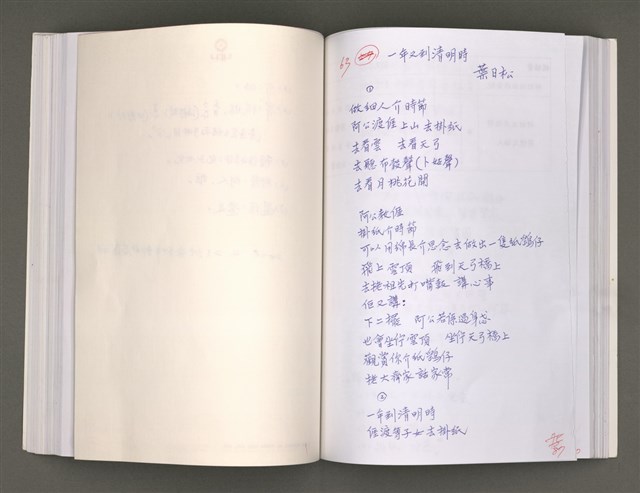 63
一年又到清明時
葉日松
①
做細人介時節
阿公渡𠊎上山去掛紙
去看雲 去看天弓
去聽布穀聲(卜姑聲)
去看月桃花開
阿公教𠊎
掛紙介時節
可以用綿長介思念去做出一隻紙鷂仔
飛上雲頂 飛到天弓橋上
去摎祖先打嘴鼓 講心事
佢又講:
下二擺 阿公若係過身忒
也會坐佇雲頂 坐佇天弓橋上
觀賞你介紙鷂仔
摎大齊家話家常
②
一年到清明時
𠊎渡等子女去掛紙